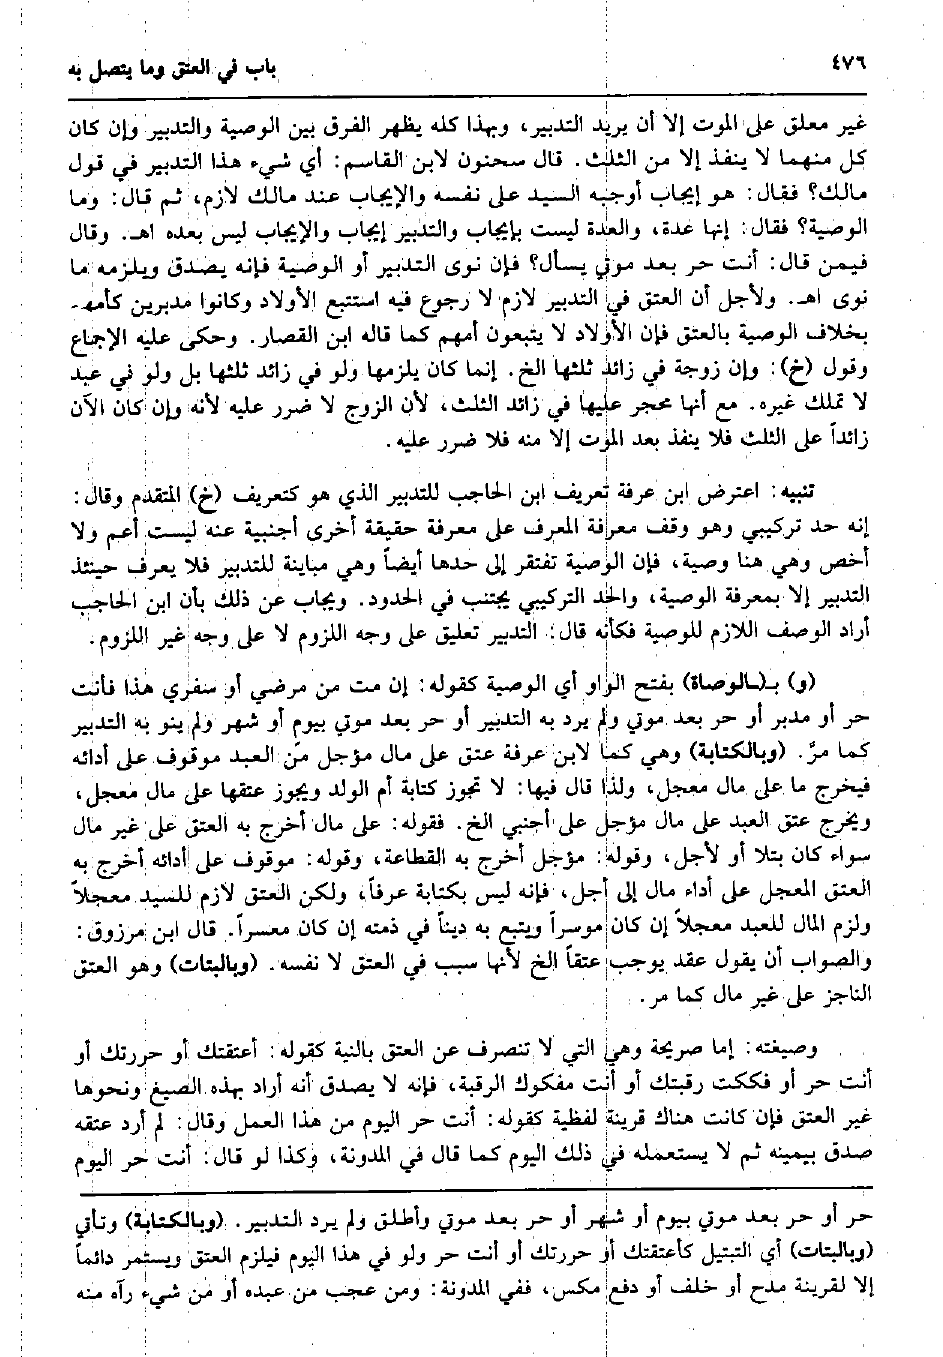 ٤٧٦
باب في العتق وما يتصل به
غير معلق على الموت إلا أن يريد التدبير، وبهذا كله يظهر الفرق بين الوصية والتدبير وإن كان
كل منهما لا ينفذ إلا من الثلث. قال سحنون لابن القاسم: أي شيء هذا التدبير في قول
مالك؟ فقال: هو إيجاب أوجبه السيد على نفسه والإيجاب عند مالك لازم، ثم قال: وما
الوصية؟ فقال: إنها عدة، والعدة ليست بإيجاب والتدبير إيجاب والإيجاب ليس بعده اهـ. وقال
فيمن قال: أنت حر بعد موتي يسأل؟ فإن نوى التدبير أو الوصية فإنه يصدق ويلزمه ما
نوى اهـ. ولأجل أن العتق في التدبير لازم لا رجوع فيه استتبع الأولاد وكانوا مدبرين كأمهم
بخلاف الوصية بالعتق فإن الأولاد لا يتبعون أمهم كما قاله ابن القصار. وحكى عليه الإجماع
وقول (خ): وإن زوجة في زائد ثلثها الخ. إنما كان يلزمها ولو في زائد ثلثها بل ولو في عبد
لا تملك غيره. مع أنها محجر عليها في زائد الثلث، لأن الزوج لا ضرر عليه لأنه وإن كان الآن
زائداً على الثلث فلا ينفذ بعد الموت إلا منه فلا ضرر عليه.
تنبيه: اعترض ابن عرفة تعريف ابن الحاجب للتدبير الذي هو كتعريف (خ) المتقدم وقال:
إنه حد تركيبي وهو وقف معرفة المعرف على معرفة حقيقة أخرى أجنبية عنه ليست أعم ولا
أخص وهي هنا وصية، فإن الوصية تفتقر إلى حدها أيضاً وهي مباينة للتدبير فلا يعرف حينئذ
التدبير إلا بمعرفة الوصية، والحد التركيبي يجتنب في الحدود. ويجاب عن ذلك بأن ابن الحاجب
أراد الوصف اللازم للوصية فكأنه قال: التدبير تعليق على وجه اللزوم لا على وجه غير اللزوم.
(و) بـ(ـالوصاة) بفتح الواو أي الوصية كقوله: إن مت من مرضي أو سفري هذا فأنت
حر أو مدبر أو حر بعد موتي ولم يرد به التدبير أو حر بعد موتي بيوم أو شهر ولم ينو به التدبير
كما مرّ. (وبالكتابة) وهي كما لابن عرفة عتق على مال مؤجل من العبد موقوف على أدائه
فيخرج ما على مال معجل، ولذا قال فيها: لا تجوز كتابة أم الولد ويجوز عتقها على مال معجل،
ويخرج عتق العبد على مال مؤجل على أجنبي الخ. فقوله: على مال أخرج به العتق على غير مال
سواء كان بتلا أو لأجل، وقوله: مؤجل أخرج به القطاعة، وقوله: موقوف على أدائه أخرج به
العتق المعجل على أداء مال إلى أجل، فإنه ليس بكتابة عرفاً، ولكن العتق لازم للسيد معجلاً
ولزم المال للعبد معجلاً إن كان موسراً ويتبع به ديناً في ذمته إن كان معسراً. قال ابن مرزوق:
والصواب أن يقول عقد يوجب عتقاً الخ لأنها سبب في العتق لا نفسه. (وبالبتات) وهو العتق
الناجز على غير مال كما مر.
وصيغته: إما صريحة وهي التي لا تنصرف عن العتق بالنية كقوله: أعتقتك أو حررتك أو
أنت حر أو فككت رقبتك أو أنت مفكوك الرقبة، فإنه لا يصدق أنه أراد بهذه الصيغ ونحوها
غير العتق فإن كانت هناك قرينة لفظية كقوله: أنت حر اليوم من هذا العمل وقال: لم أرد عتقه
صدق بيمينه ثم لا يستعمله في ذلك اليوم كما قال في المدونة، وكذا لو قال: أنت حر اليوم
حر أو حر بعد موتي بيوم أو شهر أو حر بعد موتي وأطلق ولم يرد التدبير. (وبالكتابة) وتأتي
(وبالبتات) أي التبتيل كأعتقتك أو حررتك أو أنت حر ولو في هذا اليوم فيلزم العتق ويستمر دائماً
إلا لقرينة مدح أو خلف أو دفع مكس، ففي المدونة: ومن عجب من عبده أو من شيء رآه منه